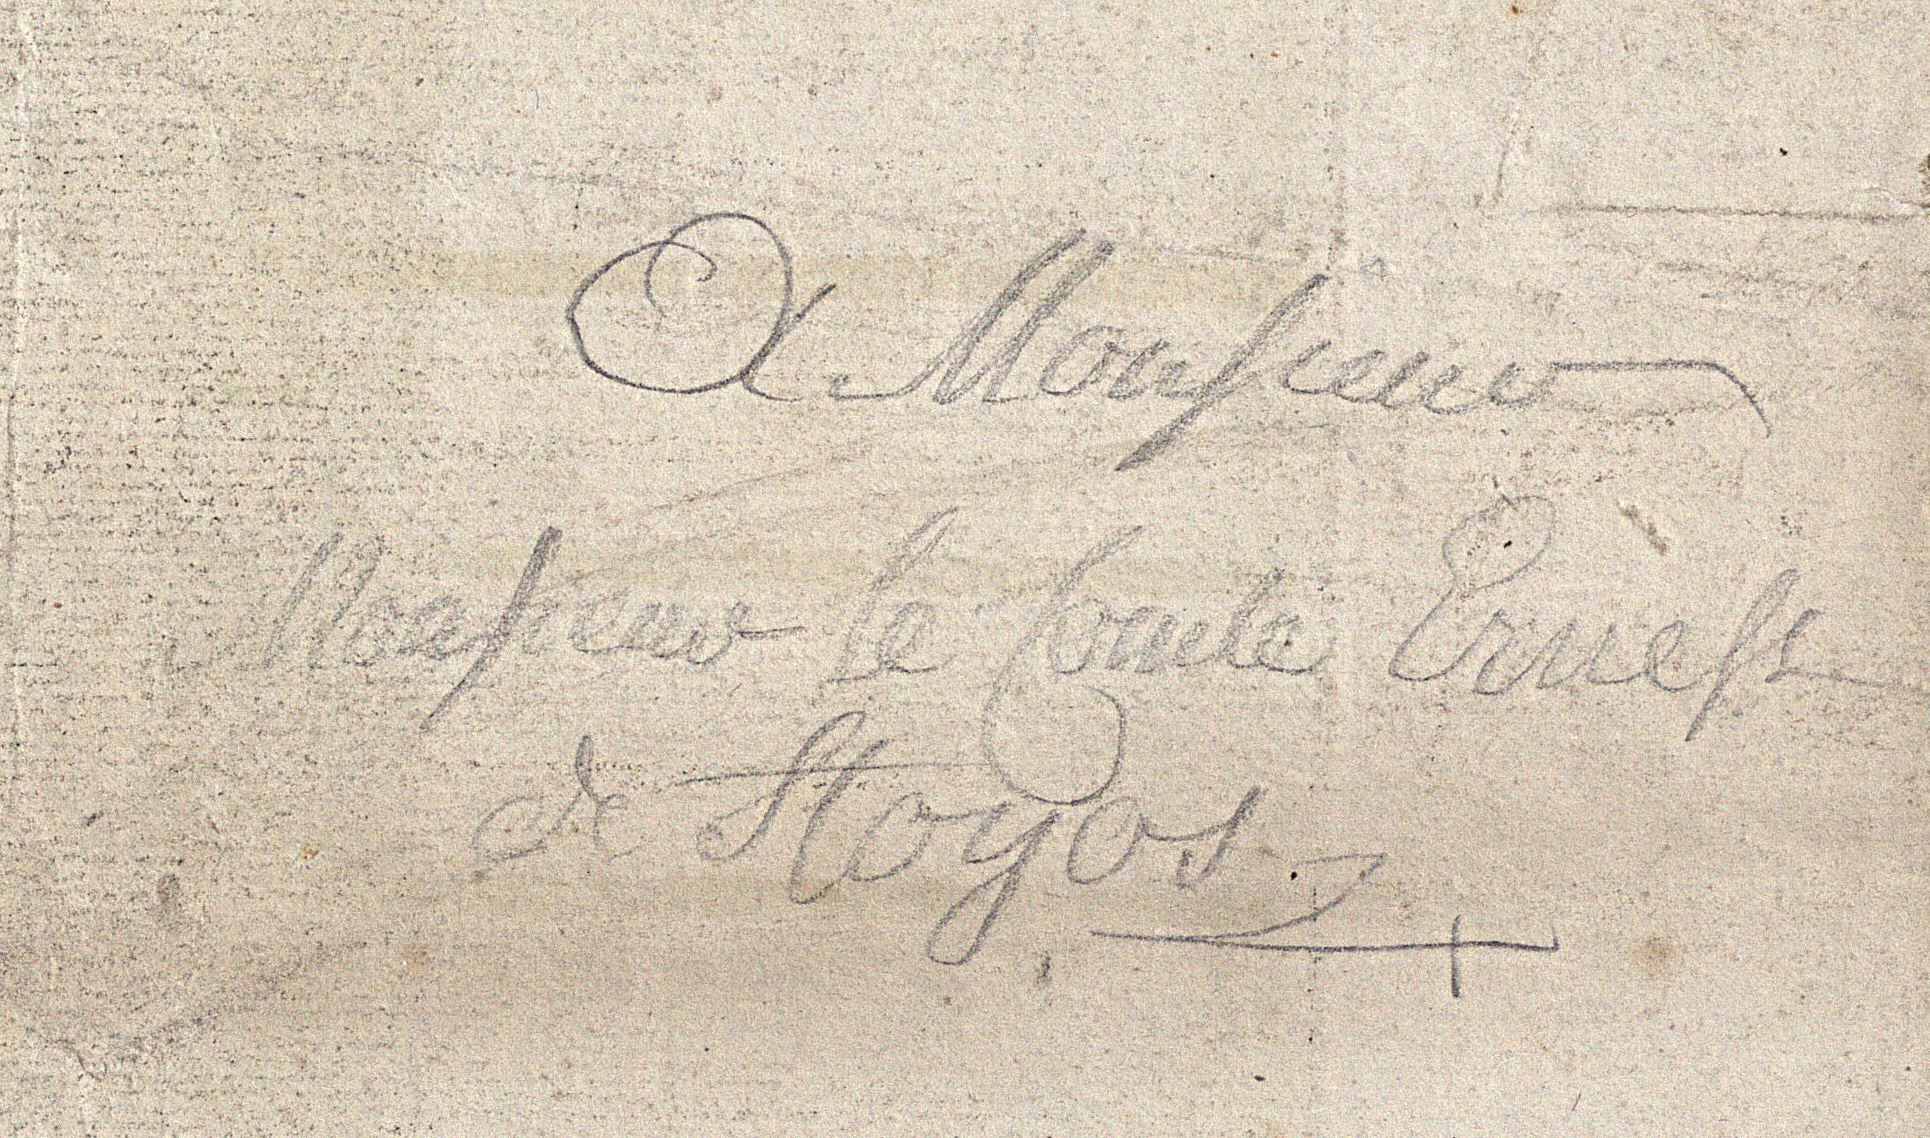 A Monsieur
Monsieur le Comte Ernest
de Hoyos